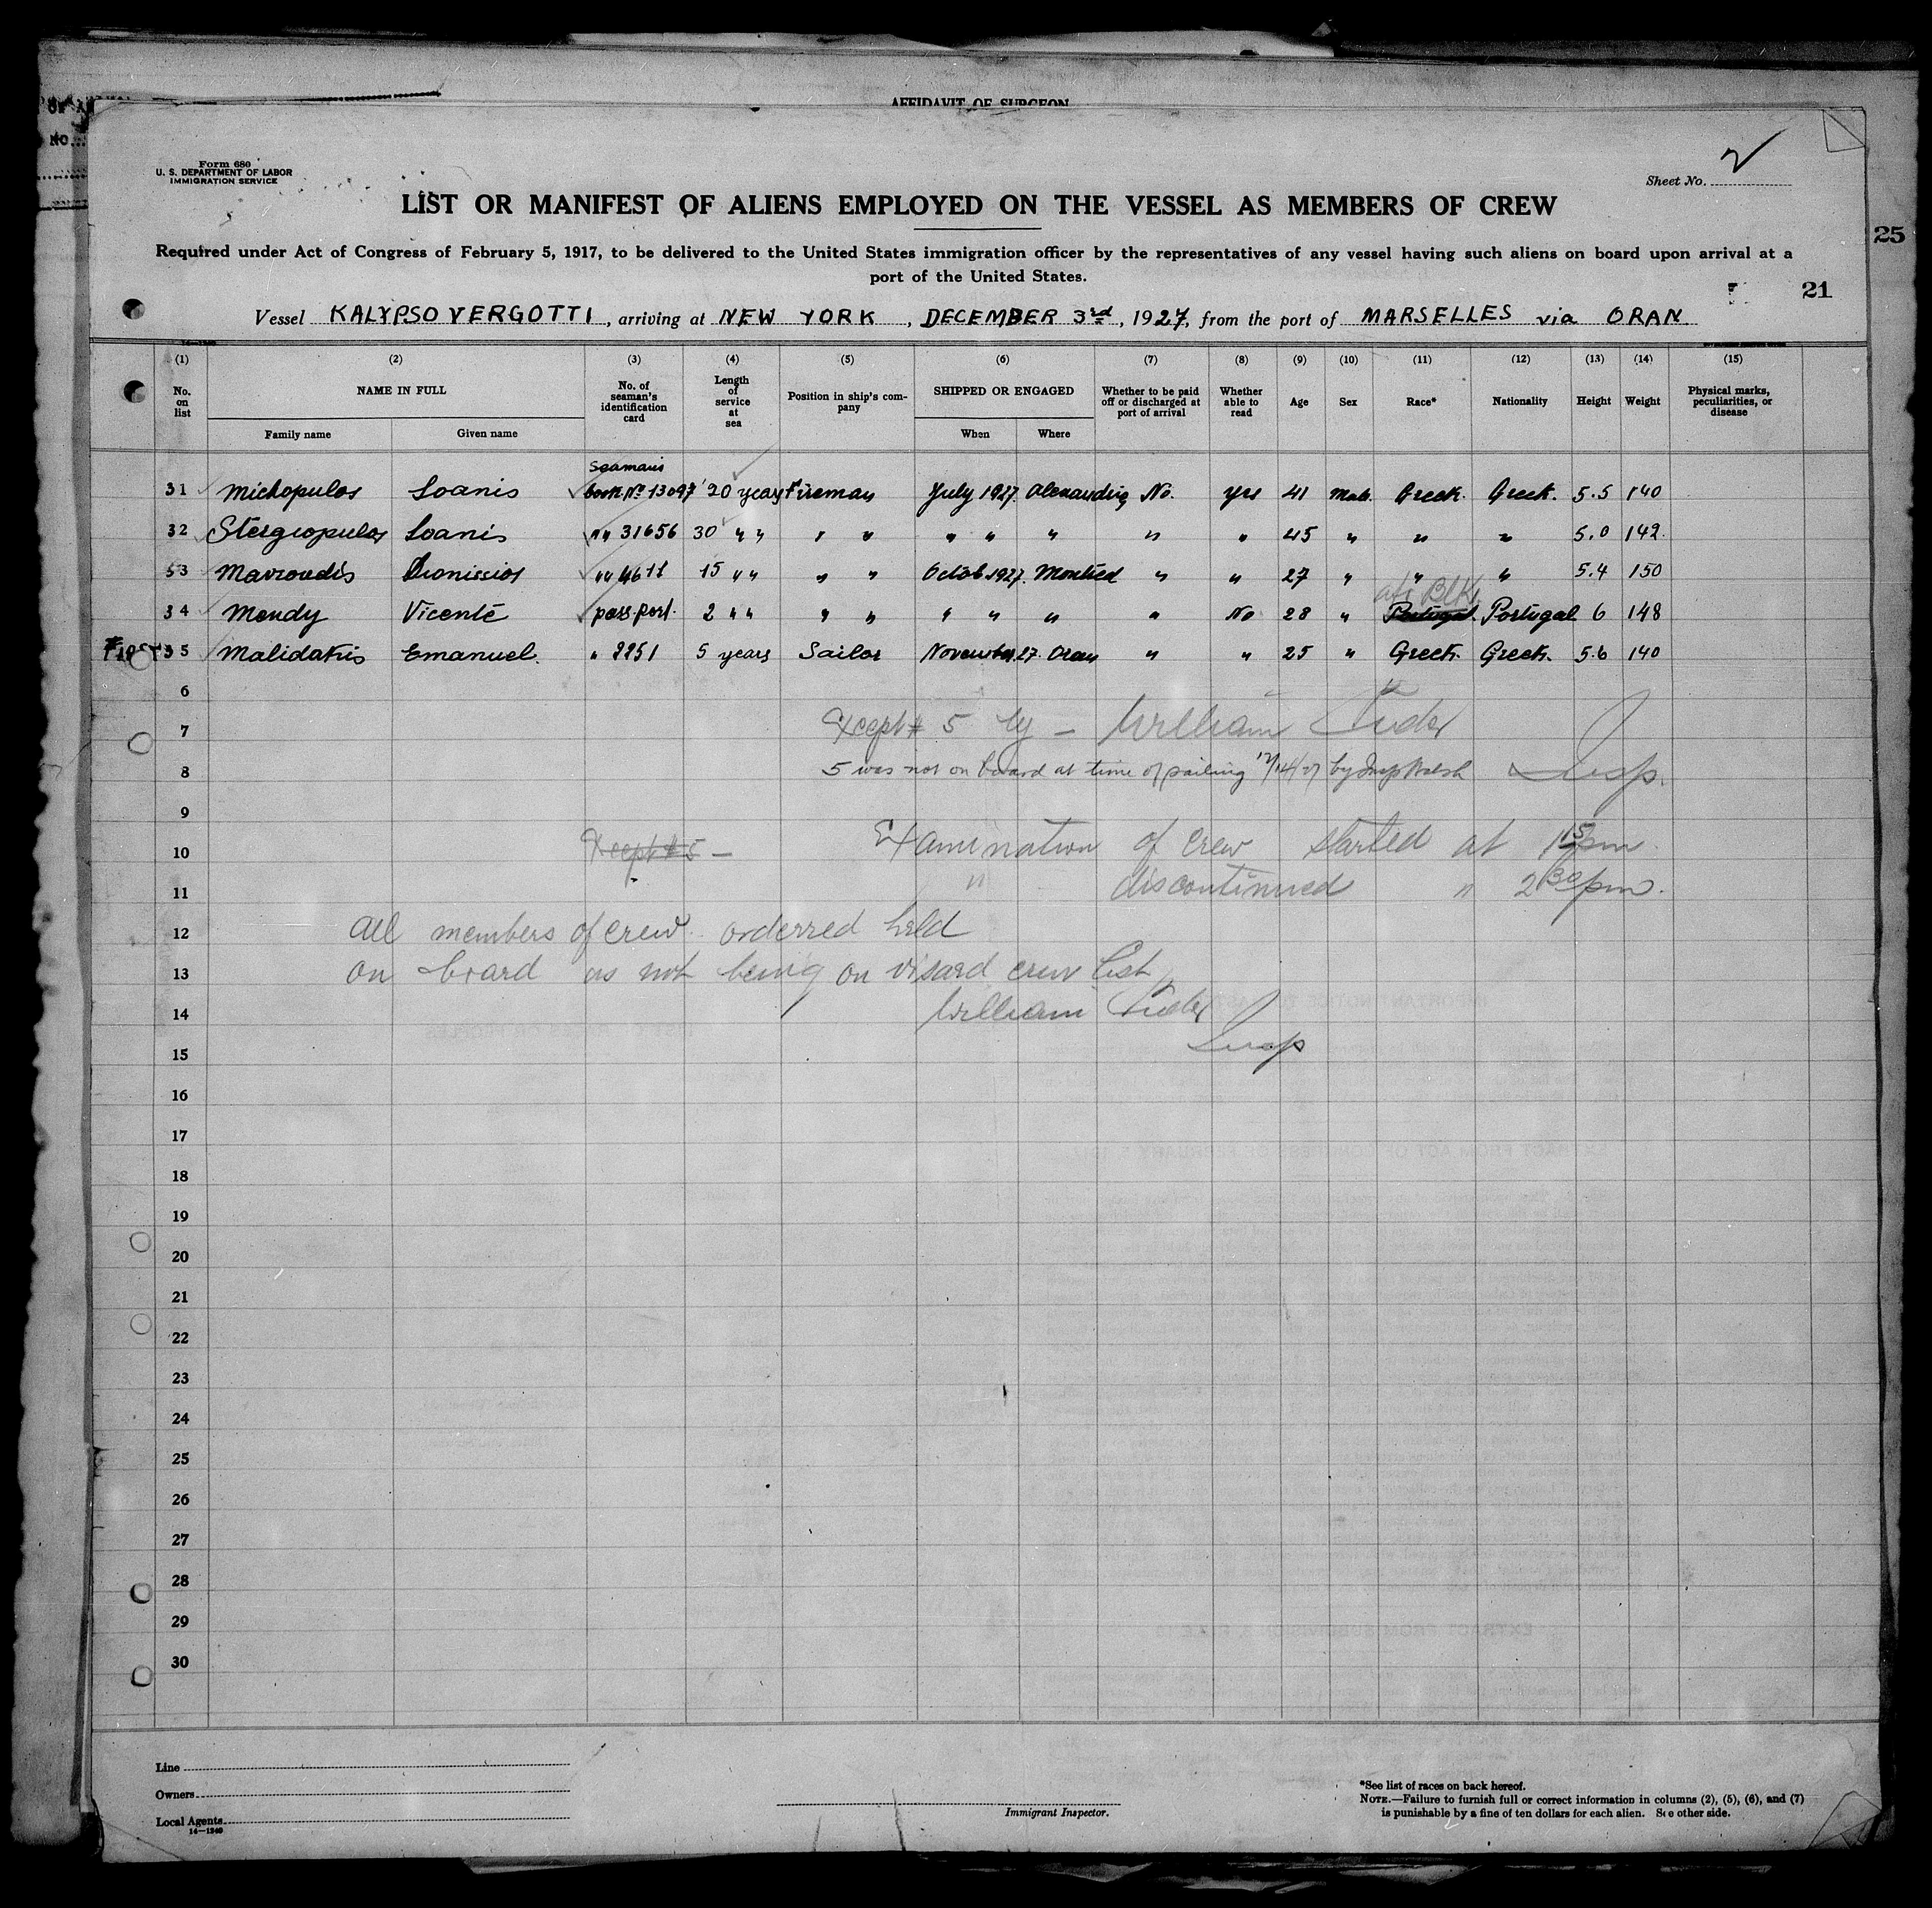 AFFIDAVIT OF SURGEON
Form 680
U. S. DEPARTMENT OF LABOR
IMMIGRATION SERVICE
Sheet No. 2
LIST OR MANIFEST OF ALIENS EMPLOYED ON THE VESSEL AS MEMBERS OF CREW
25
Required under Act of Congress of February 5, 1917, to be delivered to the United States immigration officer by the representatives of any vessel having such aliens on board upon arrival at a
port of the United States.
21
Vessel KALYPSO VERGOTTI, arriving at NEW YORK, DECEMBER 3rd, 1927, from the port of MARSELLES via ORAN
14—1240
(1) (2) (3) (4) (5) (6) (7) (8) (9) (10) (11) (12) (13) (14) (15)
No. on list NAME IN FULL No. of seaman's identification card Length of service at sea Position in ship's company SHIPPED OR ENGAGED Whether to be paid off or discharged at port of arrival Whether able to read Age Sex Race* Nationality Height Weight Physical marks, peculiarities, or disease
Family name Given name When Where
Seaman's
31 Michopulos Ioanis book No 13097 20 years Fireman July 1927. Alexandria No. yes 41 Male. Greek. Greek. 5.5 140
32 Stergiopulos Ioanis " " 31656 30 " " " " " " " " " 45 " " " 5.0 142.
33 Mavroudis Dionissios " " 4611 15 " " " " Octob 1927. Montreal " " 27 " " " 5.4 150
afr Blk
34 Mendy Vicente pass.port. 2 " " " " " " " " No 28 " Portugal. Portugal 6 148
First 35 Malidakis Emanuel. " 2251 5 years Sailor November 27. Oran " " 25 " Greek. Greek. 5.6 140
6
7 Except # 5 by — William
8 5 was not on board at time of sailing 12/14/27 by Insp Walsh Insp.
9
10 Except # 5 — Examination of crew started at 1 15 pm.
11 " discontinued " 2 30 pm.
12 All members of crew orderred held
13 on board as not being on visard crew list
14 William
15 Insp
16
17
18
19
20
21
22
23
24
25
26
27
28
29
30
Line
Owners
Local Agents
14—1240
Immigrant Inspector.
*See list of races on back hereof.
NOTE.—Failure to furnish full or correct information in columns (2), (5), (6), and (7)
is punishable by a fine of ten dollars for each alien. See other side.